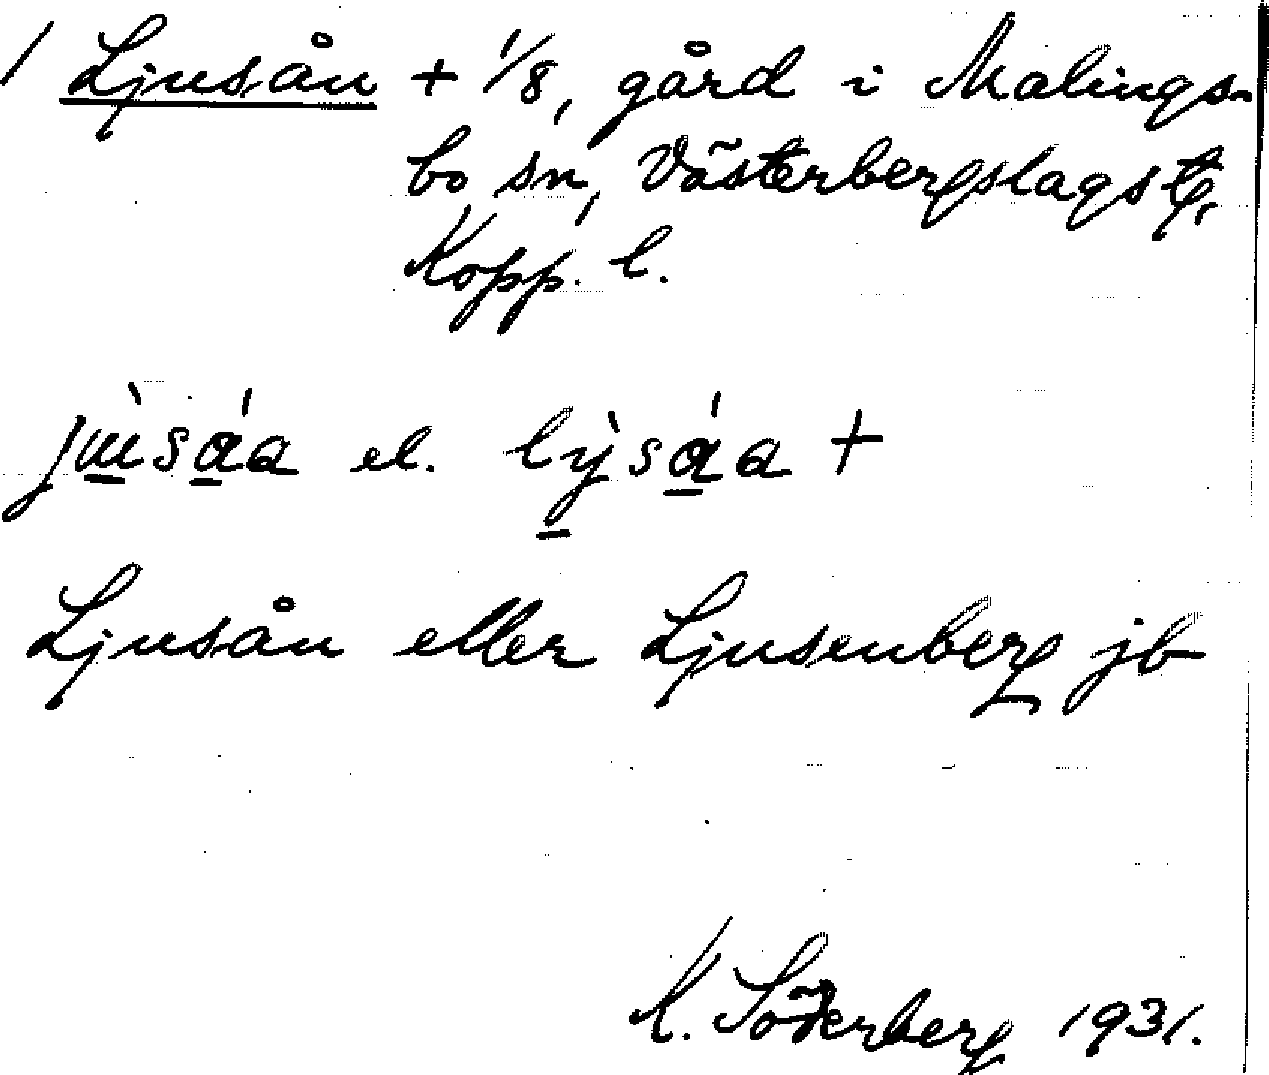 / Ljusån + 1/8, gård i Malings-
bo sn, Västerbergslags tg,
Kopp. l.
jʉ̀sáa el. lỳsáa +
Ljusån eller Ljusenberg jb
K. Söderberg 1931.